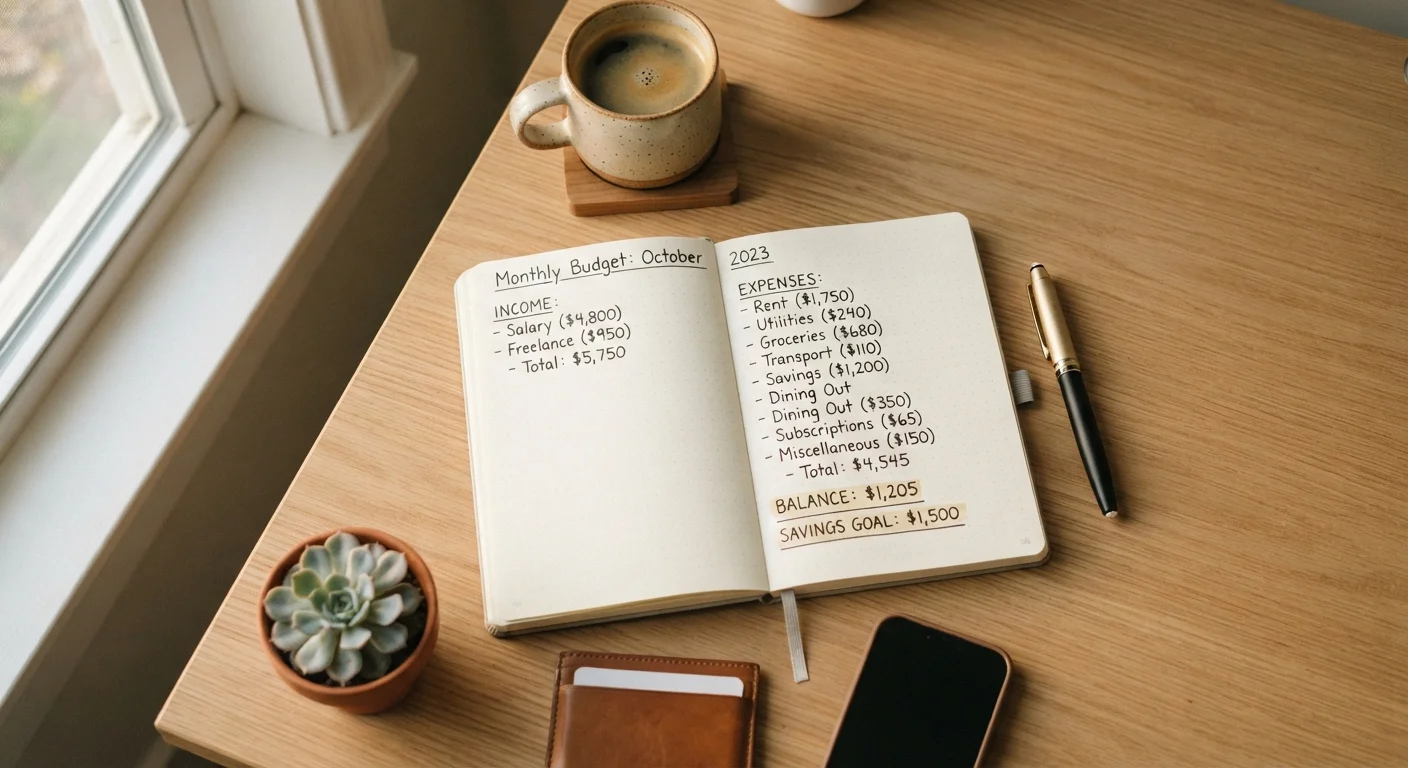 Monthly Budget: October
INCOME:
- Salary ($4,800)
- Freelance ($950)
- Total: $5,750
2023
EXPENSES:
- Rent ($1,750)
- Utilities ($240)
- Groceries ($680)
- Transport ($110)
- Savings ($1,200)
- Dining Out
- Dining Out ($350)
- Subscriptions ($65)
- Miscellaneous ($150)
- Total: $4,545
BALANCE: $1,205
SAVINGS GOAL: $1,500